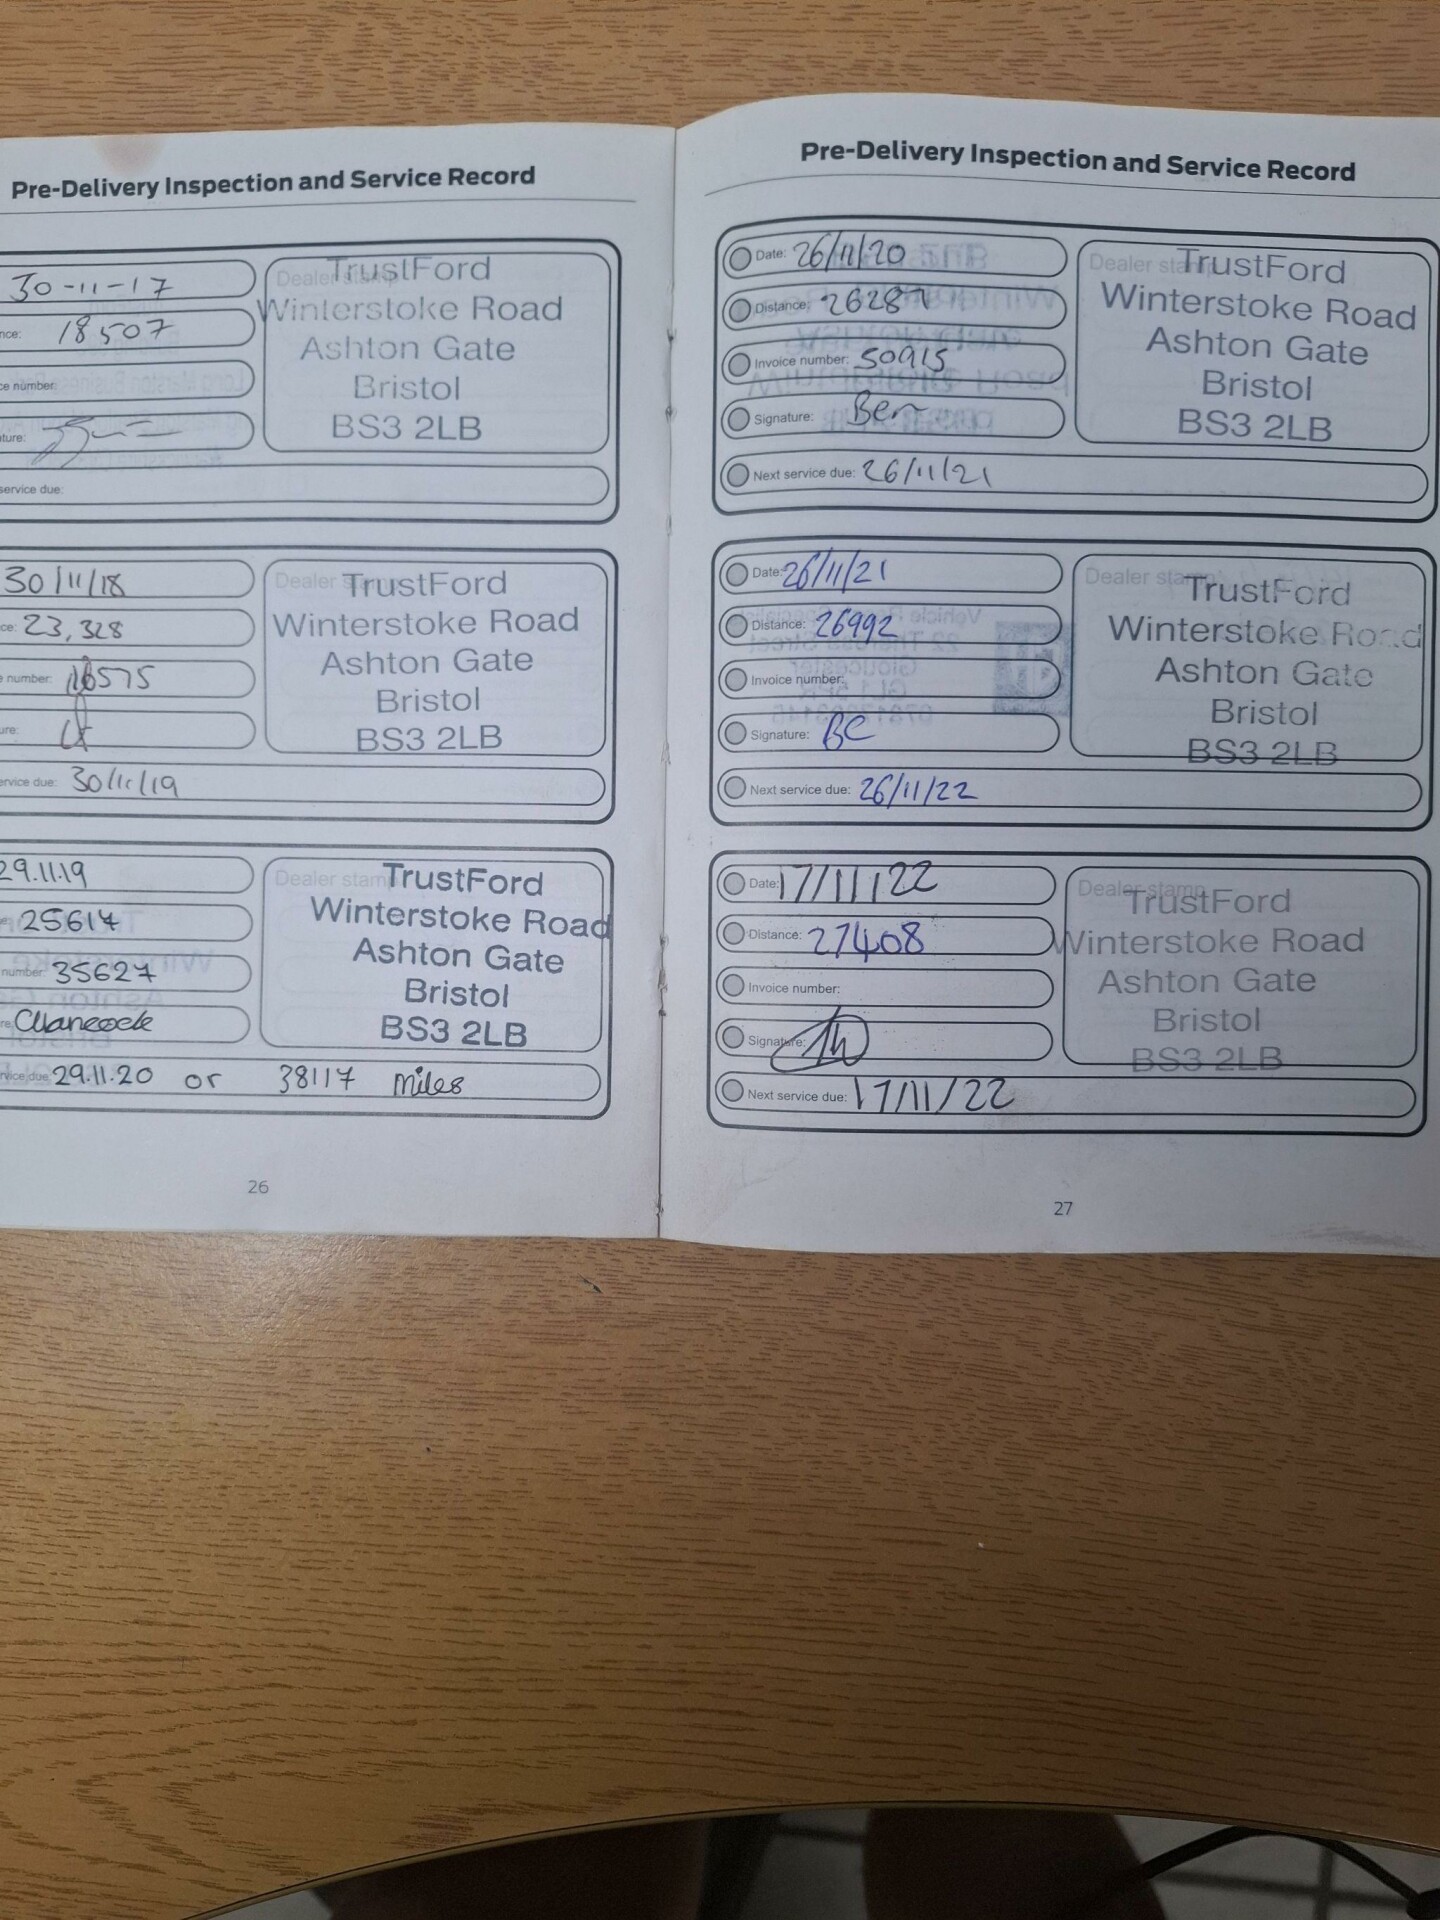 Pre-Delivery Inspection and Service Record
30-11-17
nce: 18507
ce number:
ture:
service due:
Dealer stamp
TrustFord
Winterstoke Road
Ashton Gate
Bristol
BS3 2LB
30/11/18
ce: 23,328
e number: 16575
ure:
ervice due: 30/11/19
Dealer stamp
TrustFord
Winterstoke Road
Ashton Gate
Bristol
BS3 2LB
29.11.19
25617
number: 35627
re:
rvice due: 29.11.20 or 38117 miles
Dealer stamp
TrustFord
Winterstoke Road
Ashton Gate
Bristol
BS3 2LB
26
Pre-Delivery Inspection and Service Record
Date: 26/11/20
Distance: 26287
Invoice number: 50915
Signature: Ben
Next service due: 26/11/21
Dealer stamp
TrustFord
Winterstoke Road
Ashton Gate
Bristol
BS3 2LB
Date: 26/11/21
Distance: 26992
Invoice number:
Signature: BC
Next service due: 26/11/22
Dealer stamp
TrustFord
Winterstoke Road
Ashton Gate
Bristol
BS3 2LB
Date: 17/11/22
Distance: 27408
Invoice number:
Signature:
Next service due: 17/11/22
Dealer stamp
TrustFord
Winterstoke Road
Ashton Gate
Bristol
BS3 2LB
27